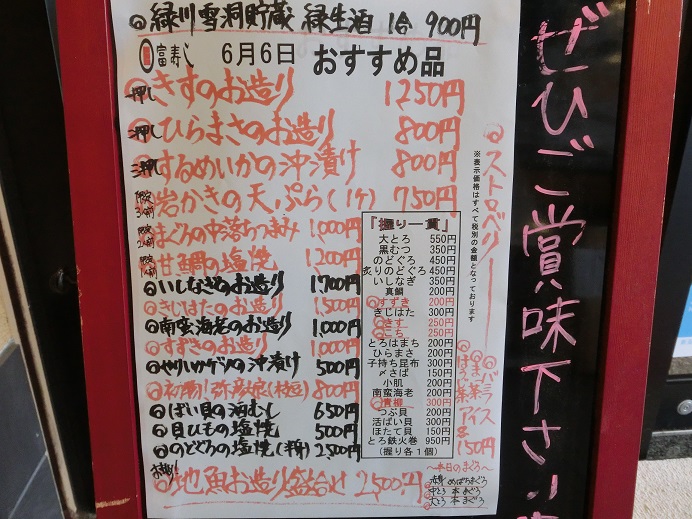 緑川雪洞貯蔵 緑生酒 1合 900円
富寿し 6月6日 おすすめ品
一押し きすのお造り 1250円
二押し ひらまさのお造り 800円
三押し するめいかの沖漬け 800円
岩かきの天ぷら(1ケ) 750円
まぐろの中落ちつまみ 1,000円
甘鯛の塩焼 1,200円
いしなぎのお造り 1,700円
きじはたのお造り 1,500円
南蛮海老のお造り 1,000円
すずきのお造り 1,000円
やりいかゲソの沖漬け 500円
初物!弥彦娘(枝豆) 800円
ばい貝の酒むし 650円
貝ひもの塩焼 500円
のどぐろの塩焼(半身) 2,500円
地魚お造り盛合せ 2,500円
「握り一貫」
大とろ 550円
黒むつ 350円
のどぐろ 450円
炙りのどぐろ 450円
いしなぎ 350円
真鯛 200円
すずき 200円
きじはた 300円
きす 250円
こち 250円
とろはまち 200円
ひらまさ 200円
子持ち昆布 300円
〆さば 150円
小肌 200円
南蛮海老 200円
青柳 300円
つぶ貝 200円
活ばい貝 300円
ほたて貝 150円
とろ鉄火巻 950円
(握り各1個)
※表示価格はすべて税別の金額となっております
ストロベリー
バニラ
アイス
各150円
～本日のまぐろ～
赤身 めばちまぐろ
中とろ 本まぐろ
大とろ 本まぐろ
ぜひご賞味下さい